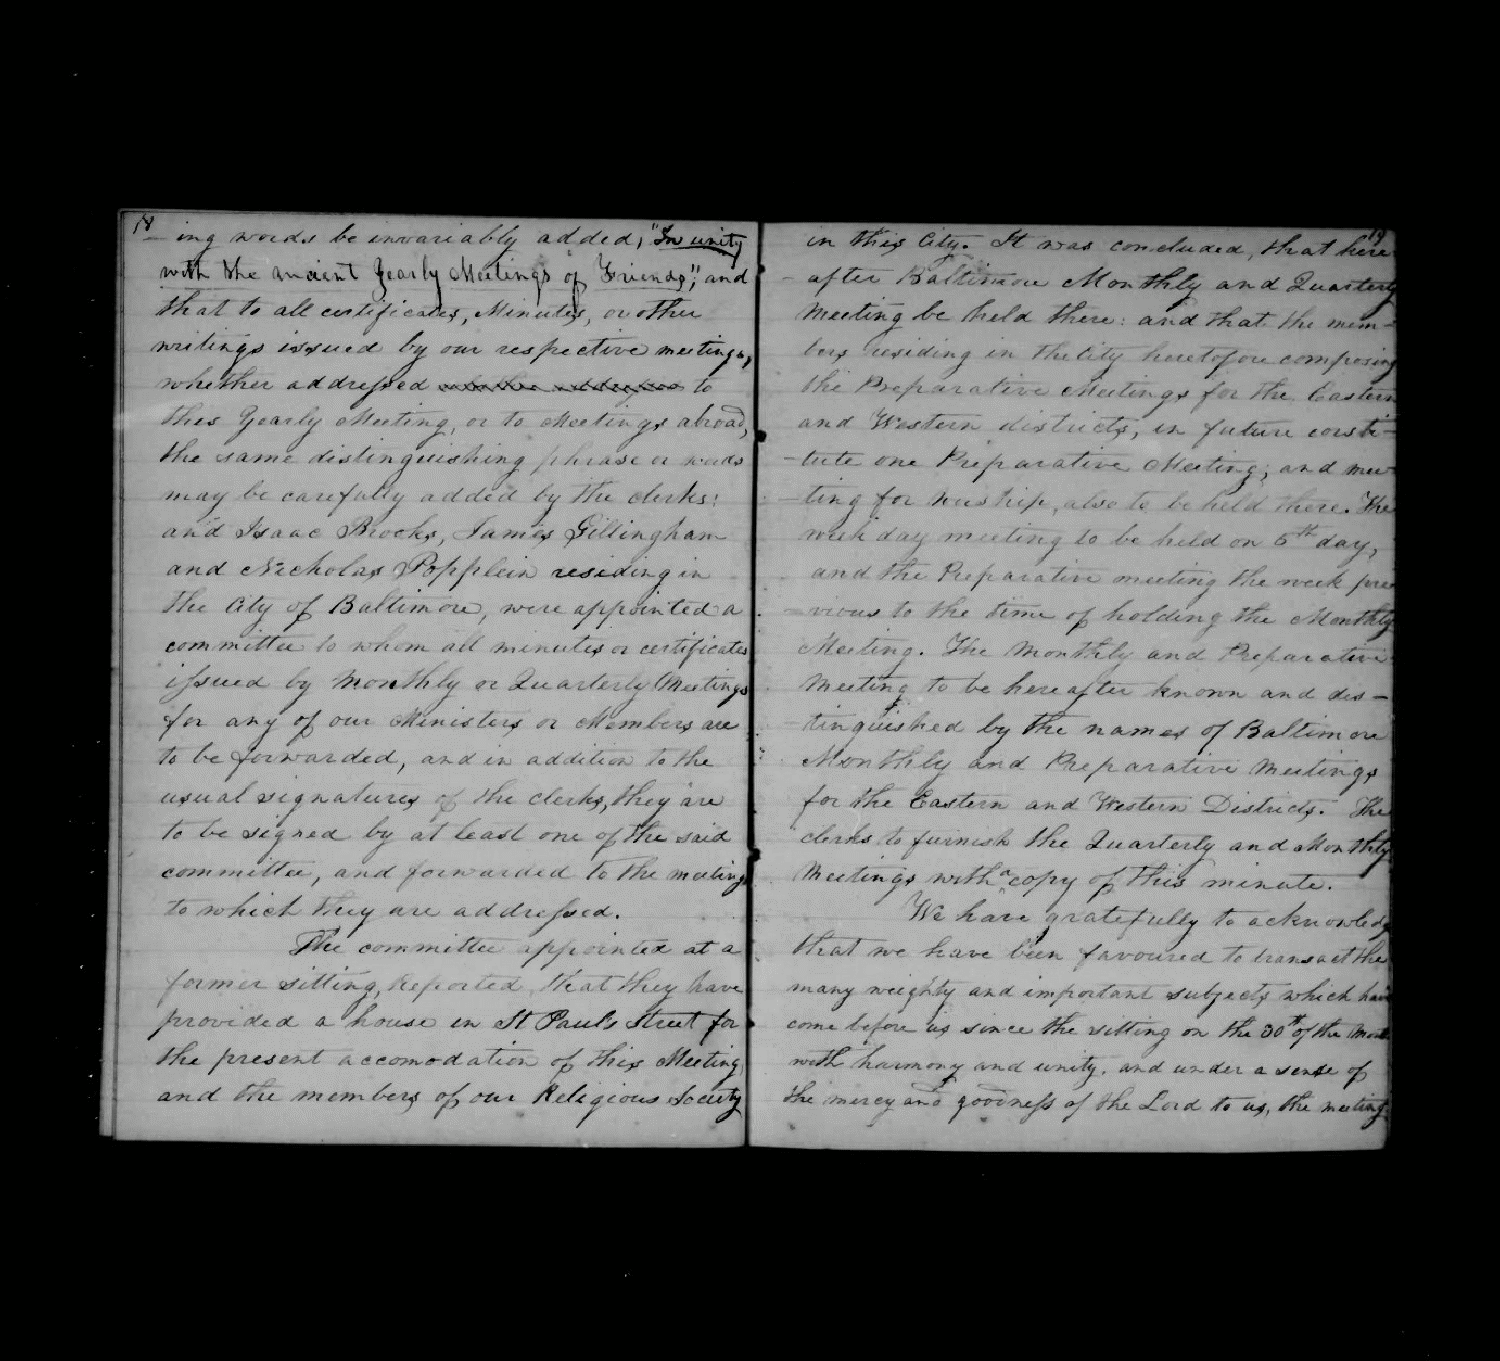 18
ing words be invariably added, "In unity
with the ancient Yearly Meetings of Friends," and
that to all certificates, Minutes, or other
writings issued by our respective meetings,
whether addressed whether addressed to
this Yearly Meeting, or to Meetings abroad,
the same distinguishing phrase or words
may be carefully added by the clerks:
and Isaac Brooks, James Gillingham
and Nicholas Popplein residing in
the City of Baltimore, were appointed a
committee to whom all minutes or certificates
issued by Monthly or Quarterly Meetings
for any of our Ministers or Members are
to be forwarded, and in addition to the
usual signatures of the clerks, they are
to be signed by at least one of the said
committee, and forwarded to the meetings
to which they are addressed.
The committee appointed at a
former sitting, Reported, that they have
provided a house in St Pauls Street for
the present accomodation of this Meeting
and the members of our Religious Society
19
in this City. It was concluded, that here
-after Baltimore Monthly and Quarterly
Meeting be held there: and that the mem-
bers residing in the City heretofore composing
the Preparative Meetings for the Eastern
and Western districts, in future consti-
-tute one Preparative Meeting; and mee
-ting for worship, also to be held there. The
week day meeting to be held on 5th day,
and the Preparative meeting the week pre
-vious to the time of holding the Monthly
Meeting. The Monthly and Preparative
Meeting to be hereafter known and dis-
-tinguished by the names of Baltimore
Monthly and Preparative Meetings
for the Eastern and Western Districts. The
clerks to furnish the Quarterly and Monthly
Meetings with a copy of this minute.
We have gratefully to acknowledge
that we have been favoured to transact the
many weighty and important subjects which have
come before us since the sitting on the 30th of the Month
with harmony and unity, and under a sense of
the mercy and goodness of the Lord to us, the meeting